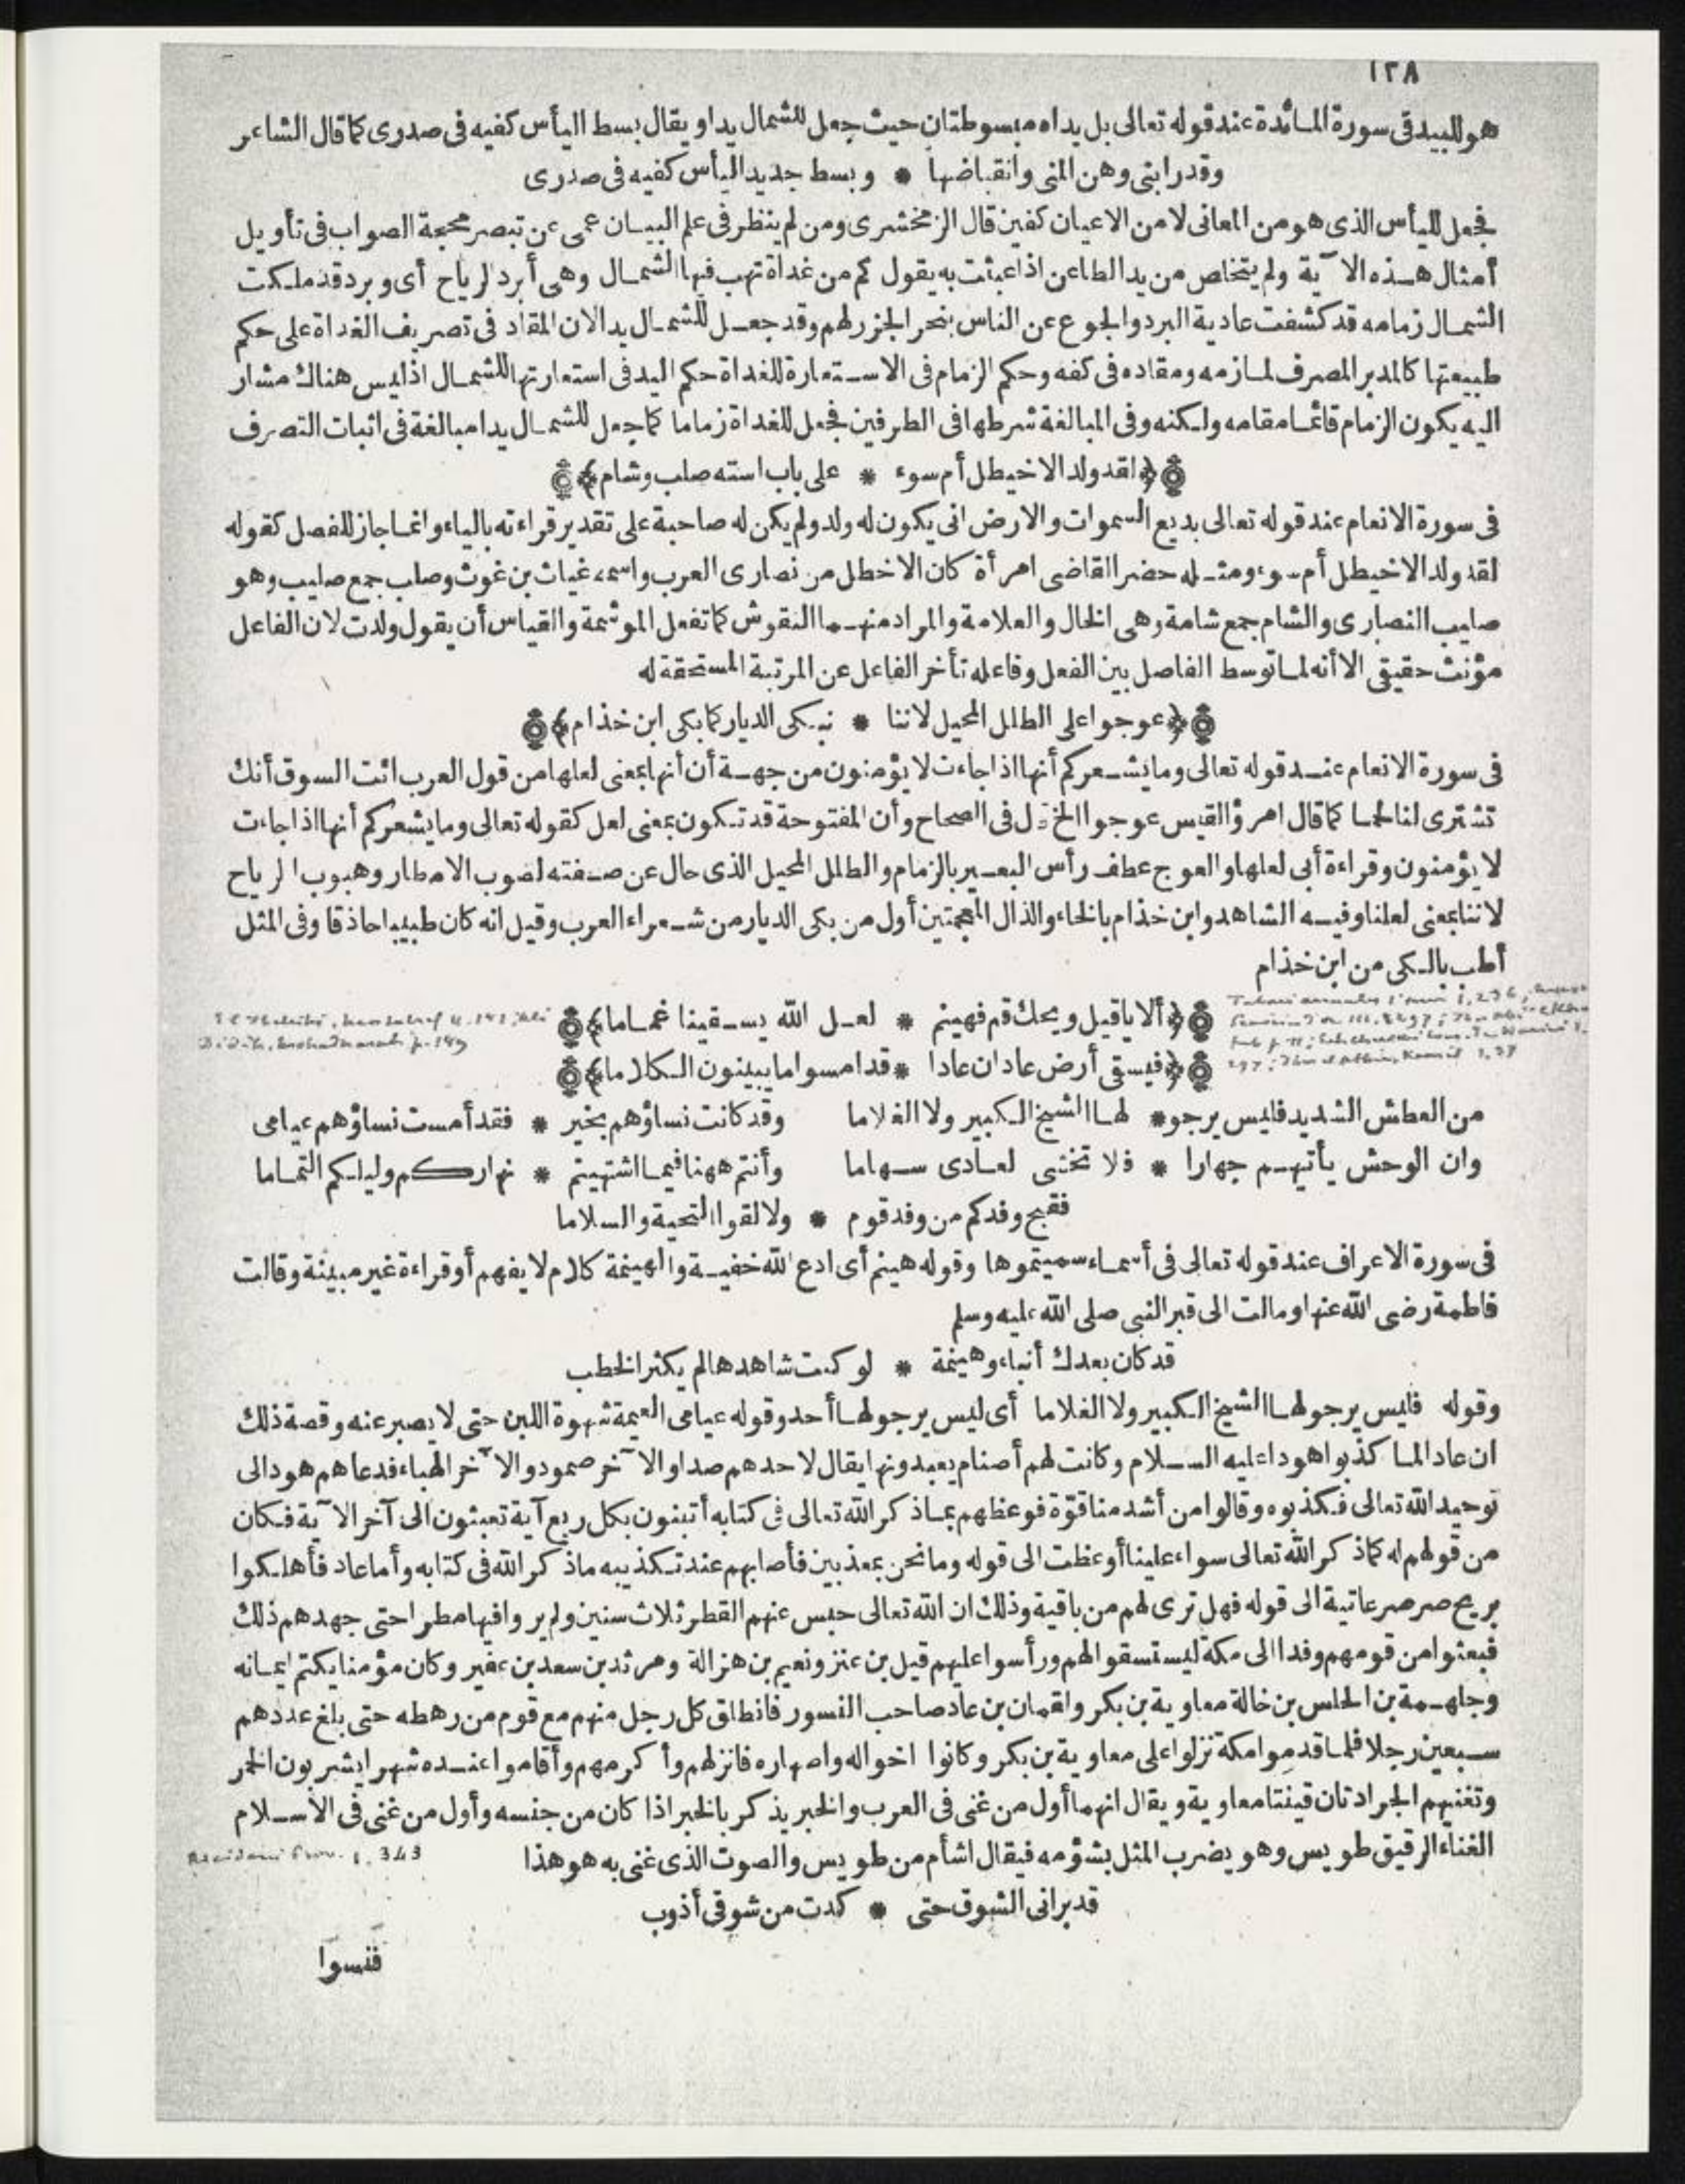 ١٢٨
هو للبيد فى سورة المائدة عند قوله تعالى بل يداه مبسوطتان حيث جعل للشمال يدا ويقال بسط اليأس كفيه فى صدرى كما قال الشاعر
وقد رابنى وهن المنى وانقباضها * وبسط جديد اليأس كفيه فى صدرى
فجعل لليأس الذى هو من المعانى لا من الاعيان كفين قال الزمخشرى ومن لم ينظر فى علم البيان عمى عن تبصر محجة الصواب فى تأويل
أمثال هذه الآية ولم يتخلص من يد الطاعن اذا عبثت به يقول كم من غداة تهب فيها الشمال وهى أبرد الرياح أى وبرد قد ملكت
الشمال زمامه قد كشفت عادية البرد والجوع عن الناس بنحر الجزر لهم وقد جعل للشمال يد الان المقاد فى تصريف الغداة على حكم
طبيعتها كالمدبر المصرف لما زمه ومقاده فى كفه وحكم الزمام فى الاستعارة للغداة حكم اليد فى استعارتها للشمال اذ ليس هناك مشار
اليه يكون الزمام قائما مقامه ولكنه وفى المبالغة شرطها فى الطرفين فجعل للغداة زماما كما جعل للشمال يدا مبالغة فى اثبات التصرف
﴿لقد ولد الاخيطل أم سوء * على باب استه صلب وشام﴾
فى سورة الانعام عند قوله تعالى بديع السموات والارض انى يكون له ولد ولم يكن له صاحبة على تقدير قراءته بالياء وانما جاز للفصل كقوله
لقد ولد الاخيطل أم سوء ومثله حضر القاضى امرأة كان الاخطل من نصارى العرب واسمه غياث بن غوث وصلب جمع صليب وهو
صليب النصارى والشام جمع شامة وهى الخال والعلامة والمراد منهما النقوش كما تفعل الموشمة والقياس أن يقول ولدت لان الفاعل
مؤنث حقيقى الا أنه لما توسط الفاصل بين الفعل وفاعله تأخر الفاعل عن المرتبة المستحقة له
﴿عوجوا على الطلل المحيل لاننا * نبكى الديار كما بكى ابن خذام﴾
فى سورة الانعام عند قوله تعالى وما يشعركم أنها اذا جاءت لا يؤمنون من جهة أن أنها بمعنى لعلها من قول العرب ائت السوق أنك
تشترى لنا لحما كما قال امرؤ القيس عوجوا الخ قال فى الصحاح وأن المفتوحة قد تكون بمعنى لعل كقوله تعالى وما يشعركم أنها اذا جاءت
لا يؤمنون وقراءة أبى لعلها والعوج عطف رأس البعير بالزمام والطلل المحيل الذى حال عن صفته لصوب الامطار وهبوب الرياح
لاننا بمعنى لعلنا وفيه الشاهد وابن خذام بالخاء والذال المعجمتين أول من بكى الديار من شعراء العرب وقيل انه كان طبيبا حاذقا وفى المثل
أطب بالكى من ابن خذام
﴿ألا يا قيل ويحك قم فهينم * لعل الله يسقينا غماما﴾
﴿فيسقى أرض عاد ان عادا * قد امسوا ما يبينون الكلاما﴾
من العطش الشديد فليس يرجو * لها الشيخ الكبير ولا الغلاما وقد كانت نساؤهم بخير * فقد أمست نساؤهم عيامى
وان الوحش يأتيهم جهارا * فلا تخشى لعادى سهاما وأنتم ههنا فيما اشتهيتم * نهاركم وليلكم التماما
فقبح وفدكم من وفد قوم * ولا لقوا التحية والسلاما
فى سورة الاعراف عند قوله تعالى فى أسماء سميتموها وقوله هينم أى ادع الله خفية والهينمة كلام لا يفهم أو قراءة غير مبينة وقالت
فاطمة رضى الله عنها ومالت الى قبر النبى صلى الله عليه وسلم
قد كان بعدك أنباء وهينمة * لو كنت شاهدها لم يكثر الخطب
وقوله فليس يرجو لها الشيخ الكبير ولا الغلاما أى ليس يرجو لها أحد وقوله عيامى العيمة شهوة اللبن حتى لا يصبر عنه وقصة ذلك
ان عادا لما كذبوا هودا عليه السلام وكانت لهم أصنام يعبدونها يقال لاحدهم صدا والآخر صمود والآخر الهباء فدعاهم هود الى
توحيد الله تعالى فكذبوه وقالوا من أشد منا قوّة فوعظهم بما ذكر الله تعالى فى كتابه أتبنون بكل ريع آية تعبثون الى آخر الآية فكان
من قولهم له كما ذكر الله تعالى سواء علينا أوعظت الى قوله وما نحن بمعذبين فأصابهم عند تكذيبه ما ذكر الله فى كتابه وأما عاد فأهلكوا
بريح صرصر عاتية الى قوله فهل ترى لهم من باقية وذلك ان الله تعالى حبس عنهم القطر ثلاث سنين ولم يروا فيها مطرا حتى جهدهم ذلك
فبعثوا من قومهم وفدا الى مكة ليستسقوا لهم ورأسوا عليهم قيل بن عنز ونعيم بن هزالة ومرثد بن سعد بن عفير وكان مؤمنا يكتم ايمانه
وجلهمة بن الحلس بن خالة معاوية بن بكر ولقمان بن عاد صاحب النسور فانطلق كل رجل منهم مع قوم من رهطه حتى بلغ عددهم
سبعين رجلا فلما قدموا مكة نزلوا على معاوية بن بكر وكانوا اخواله واصهاره فانزلهم وأكرمهم وأقاموا عنده شهرا يشربون الخمر
وتغنيهم الجرادتان قينتا معاوية ويقال انهما أول من غنى فى العرب والخبر يذكر بالخبر اذا كان من جنسه وأول من غنى فى الاسلام
الغناء الرقيق طويس وهو يضرب المثل بشؤمه فيقال اشأم من طويس والصوت الذى غنى به هو هذا
قد برانى الشوق حتى * كدت من شوقى أذوب
فنسوا